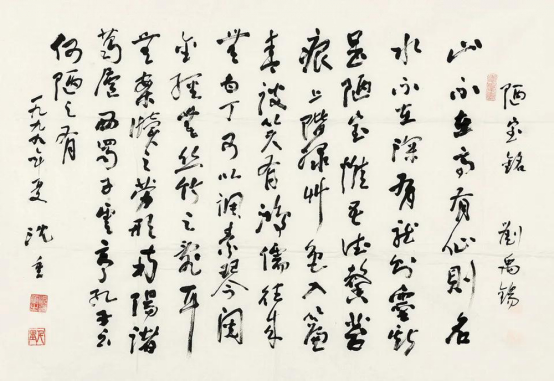 陋室銘 劉禹錫
山不在高有仙則名
水不在深有龍則靈斯
是陋室惟吾德馨苔
痕上階綠艸色入簾
青談笑有鴻儒往來
無白丁可以調素琴閱
金經無絲竹之亂耳
無案牘之勞形南陽諸
葛廬西蜀子雲亭孔子云
何陋之有
一九九年夏 沈